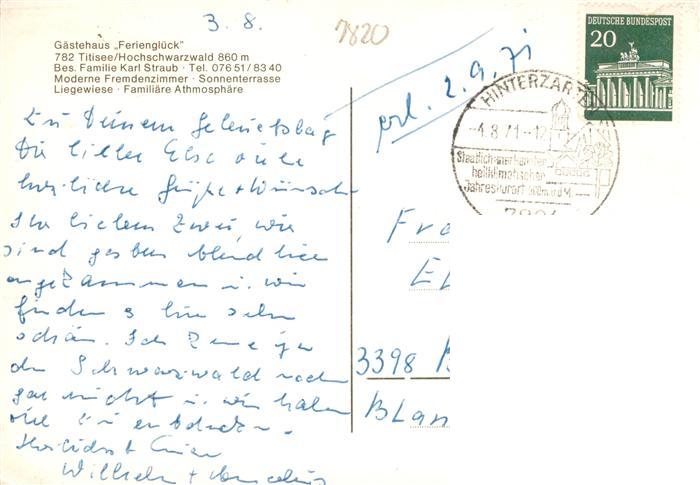 3. 8.
7820
Gästehaus „Ferienglück"
782 Titisee/Hochschwarzwald 860 m
Bes. Familie Karl Straub · Tel. 0 76 51 / 83 40
Moderne Fremdenzimmer · Sonnenterrasse
Liegewiese · Familiäre Athmosphäre
DEUTSCHE BUNDESPOST
20
erl. 2.9.71
HINTERZARTEN
-4.8.71-12
Staatlich anerkannter
heilklimatischer
Jahreskurort
Zu Deinem Geburtstag
Dir liebe Else viele
herzliche Grüße + Wünsche
Ihr lieben Zwei, wir
sind gestern
angekommen u. wir
finden es hier sehr
schön. Ich kenne ja
den Schwarzwald noch
gar nicht u. wir haben
viel zu entdecken.
Herzlichst Euer
Wilhelm +
Fra
El
3398
Blan